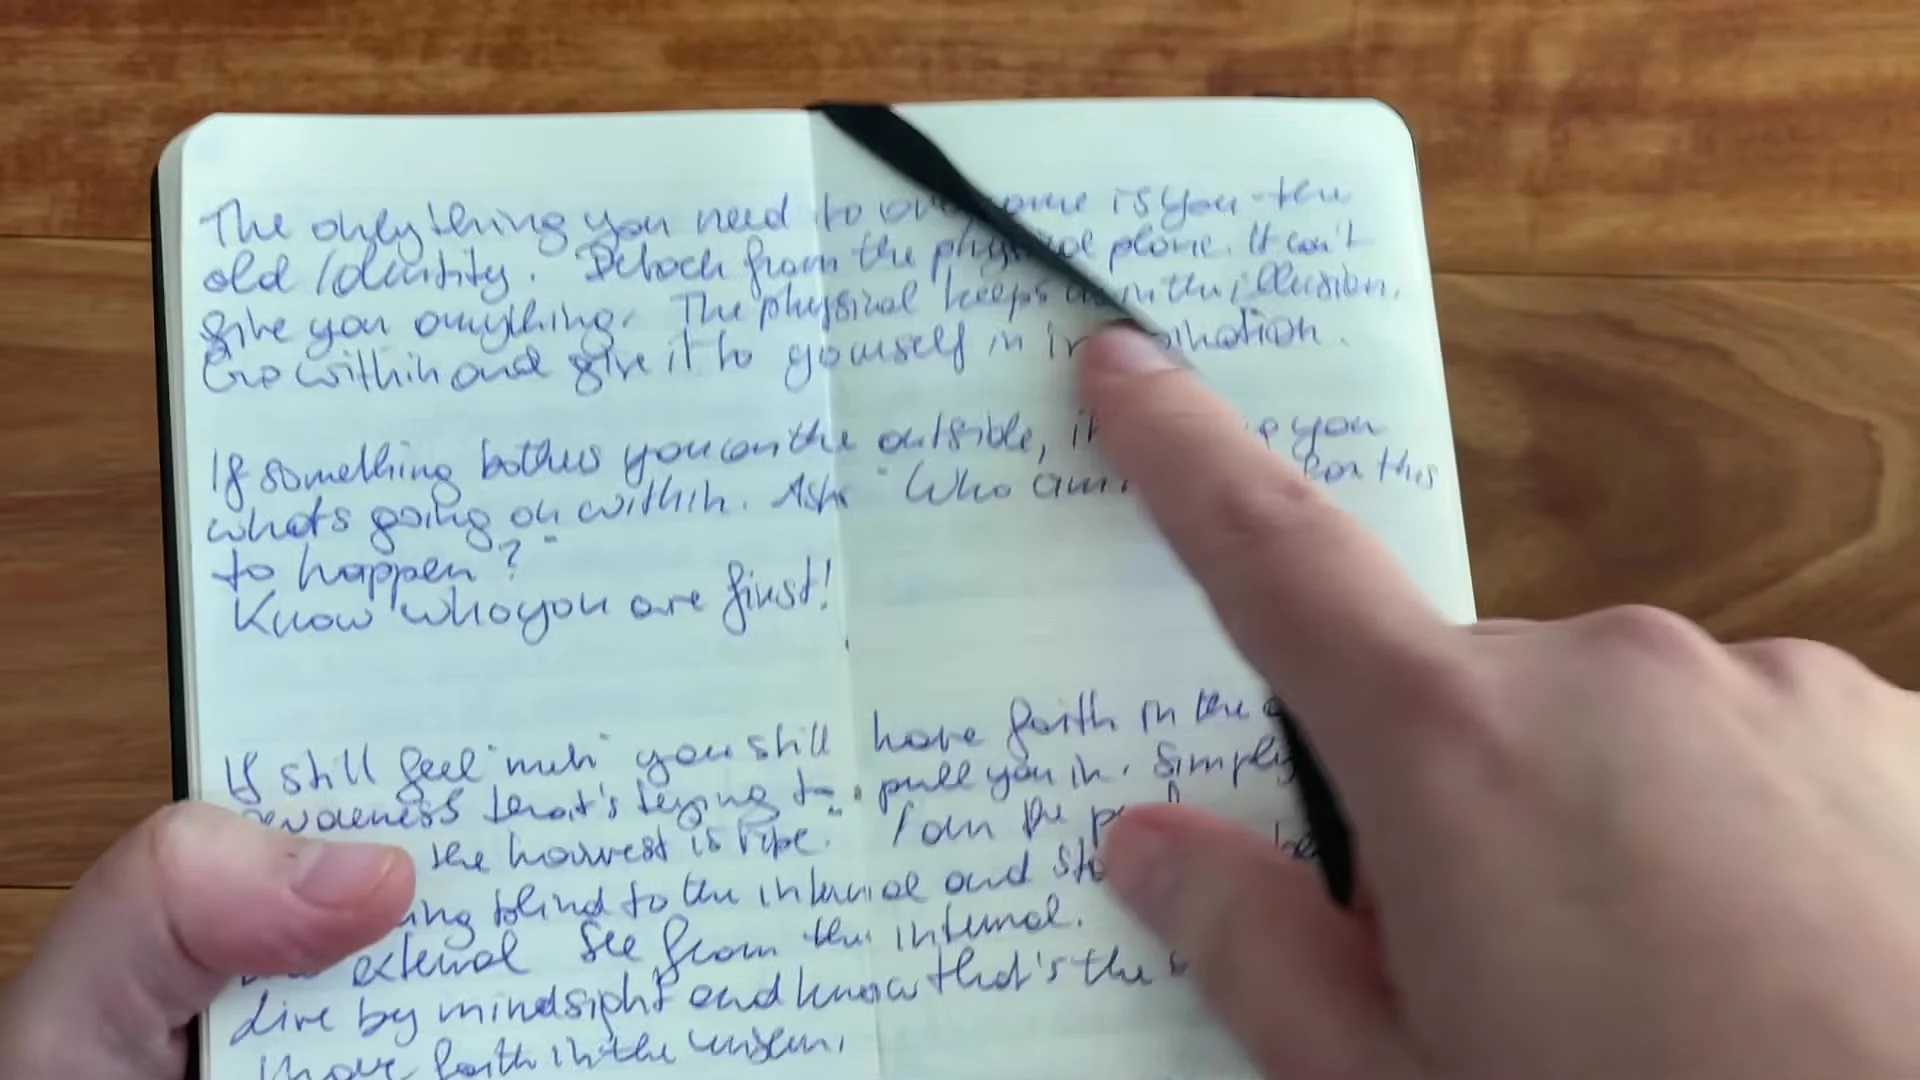 The only thing you need to overcome is you - the
old identity. Detach from the physical plane. It can't
give you anything. The physical keeps us in the illusion.
Go within and give it to yourself in imagination.
If something bothers you on the outside, it you
what's going on within. Ask "Who am for this
to happen?"
Know who you are first!
If still feel "meh" you still have faith in the
that's trying to pull you in. Simply
the harvest is ripe. I am the
blind to the internal and
external See from the internal.
Live by mindsight and know that's the
have faith in the unseen.